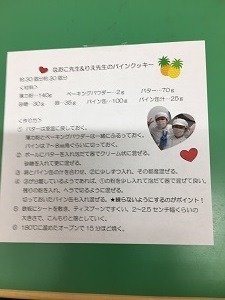 なおこ先生&りえ先生のパインクッキー
約30個分
<材料>
薄力粉…140g ベーキングパウダー…2g バター…70g
砂糖…30g 卵…35g パイン缶…100g パイン缶汁…25g
<作り方>
① バターは室温に戻しておく。
薄力粉とベーキングパウダーは一緒にふるっておく。
パインは7~8㎜角くらいに切っておく。
② ボールにバターを入れ泡立て器でクリーム状に混ぜる。
砂糖を入れて更に混ぜる。
③ 卵とパイン缶の汁を合わせ、②に少しずつ入れ、その都度混ぜる。
④ ③が分離しているようであれば、①の粉を少し入れて泡だて器で混ぜて良い。
残りの粉を入れ、ヘラで切るように混ぜる。
切っておいたパイン缶も入れ混ぜる。★練らないようにするのがポイント!
⑤ 鉄板にシートを敷き、ティスプーンですくい、2~2.5センチ幅くらいの
大きさで、こんもりと落としていく。
⑥ 180℃に温めたオーブンで15分ほど焼く。